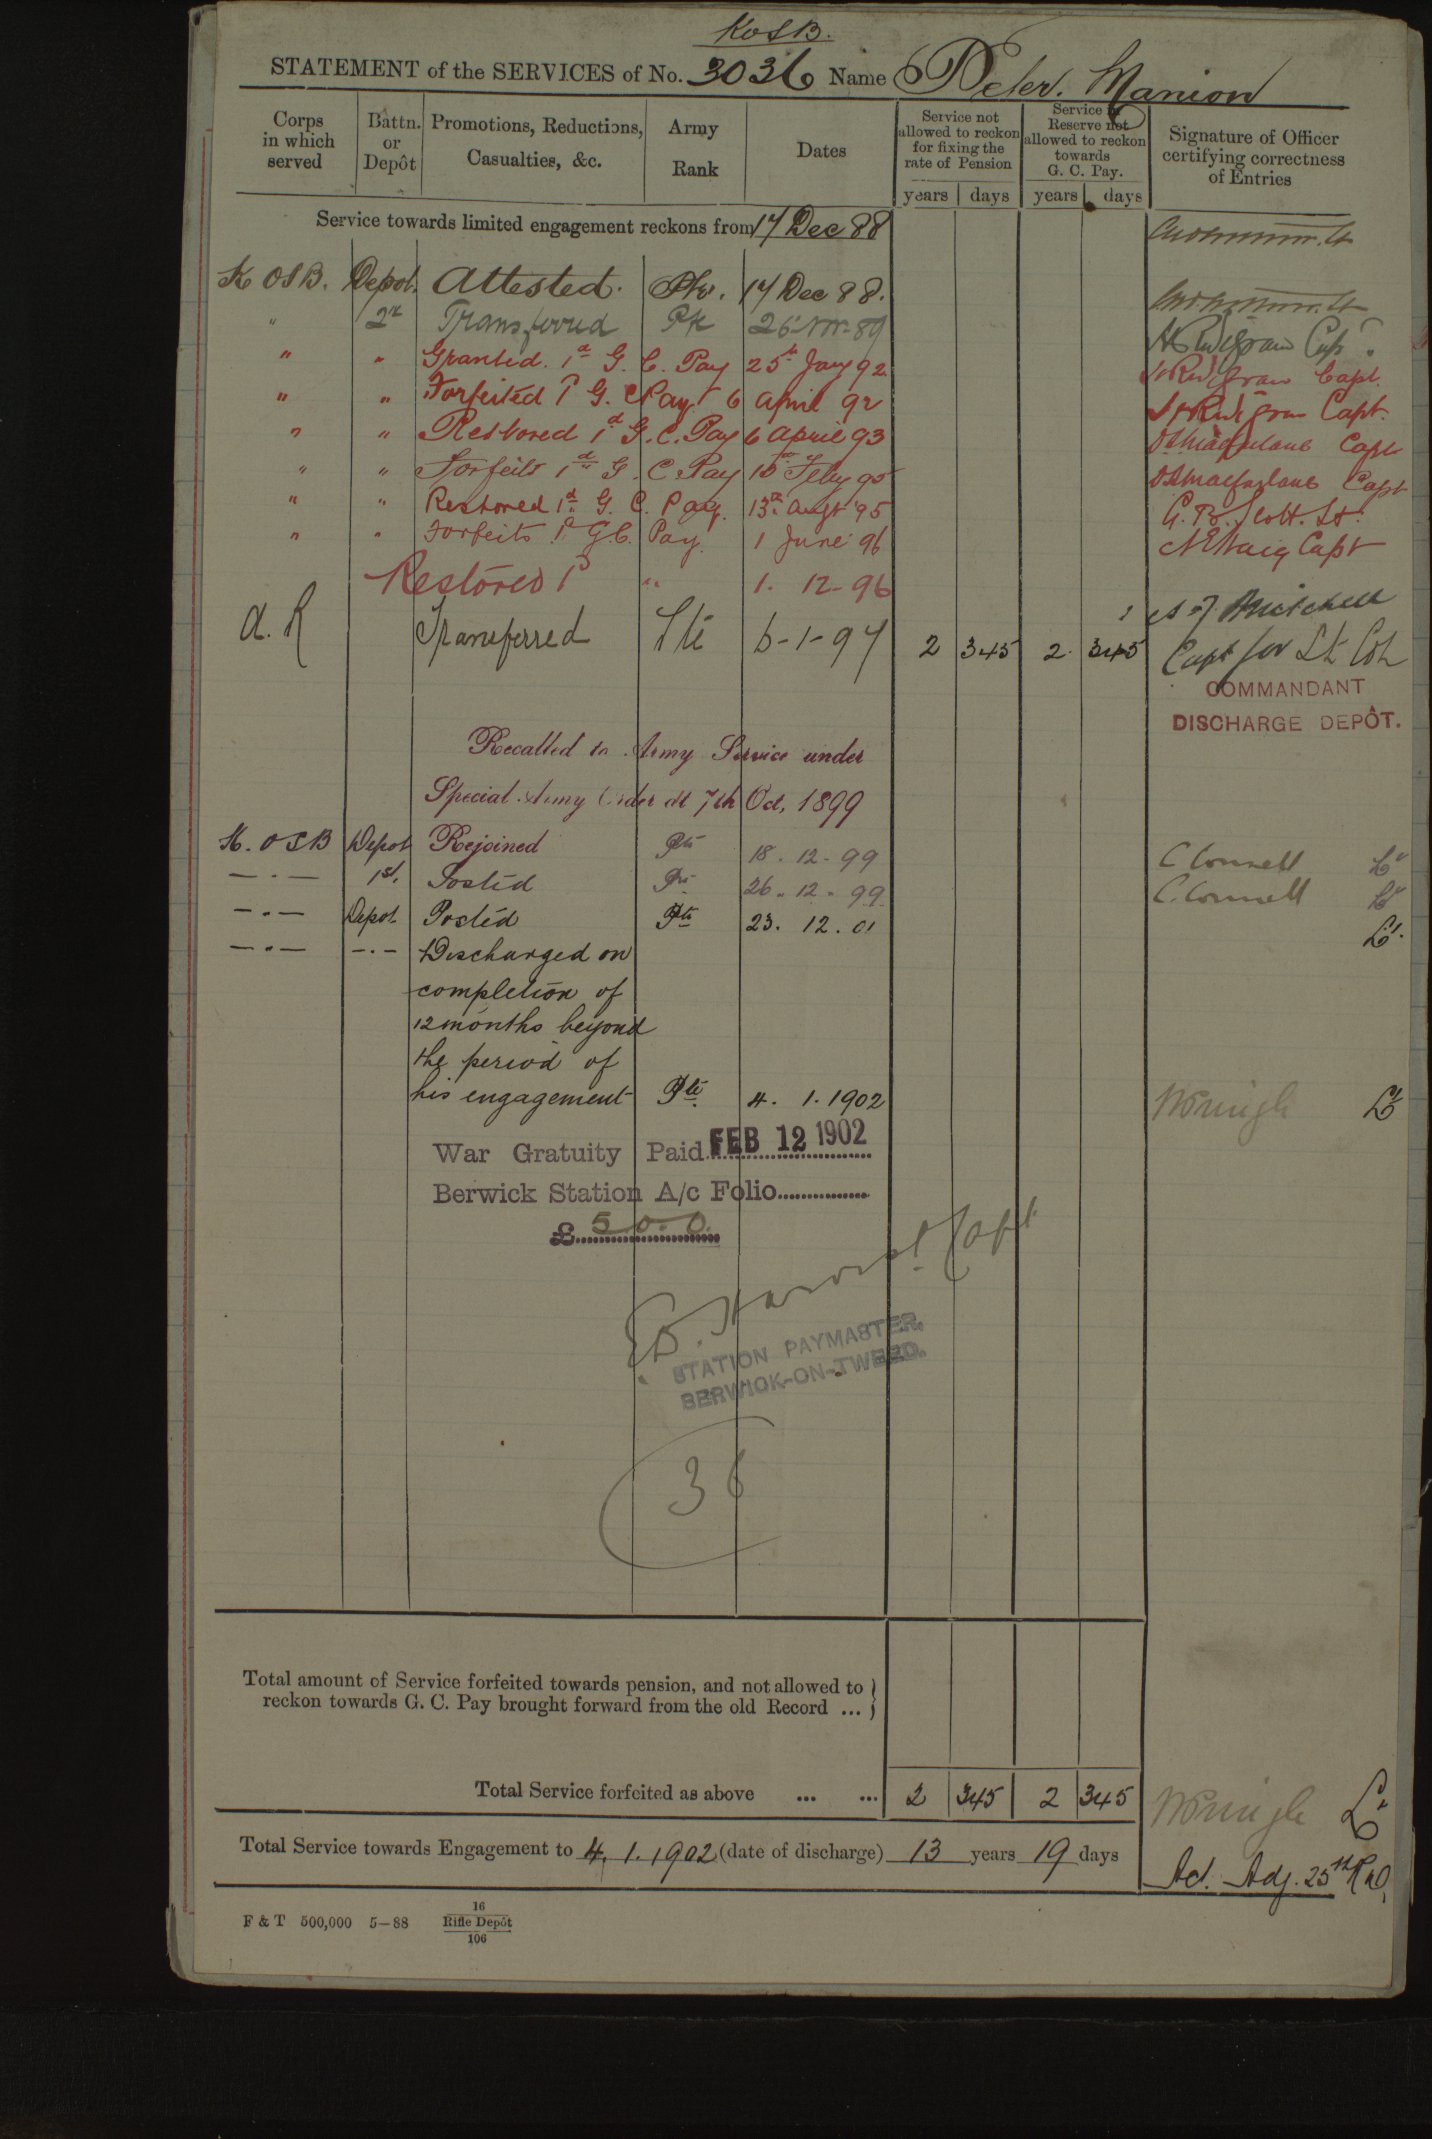 KOSB.
STATEMENT of the SERVICES of No. 3036 Name Peter Manion
Corps in which served
Battn. or Depôt
Promotions, Reductions, Casualties, &c.
Army Rank
Dates
Service not allowed to reckon for fixing the rate of Pension
years days
Service in Reserve not allowed to reckon towards G. C. Pay.
years days
Signature of Officer certifying correctness of Entries
Service towards limited engagement reckons from 17 Dec 88
K OSB. Depot. Attested. Pte. 17 Dec 88.
" 2nd Transferred Pte 26 Nov 89
" " Granted 1d G. C. Pay 25th Jany 92 Capt.
" " Forfeited 1d G. C Pay 6 April 92 Capt.
" " Restored 1d G. C. Pay 6 April 93 Macfarlane Capt
" " Forfeits 1d G. C. Pay 15th Feby 95 Macfarlane Capt
" " Restored 1d G. C. Pay. 13th Augt '95 G. B. Scott. Lt.
" " Forfeits 1d G.C. Pay. 1 June 96 Haig Capt
Restored 1d " 1. 12-96
A. R Transferred Pte 6-1-97 2 345 2 345 Mitchell
Capt for Lt Col
COMMANDANT
DISCHARGE DEPÔT.
Recalled to Army Service under
Special Army Order dt 7th Oct, 1899
K. OSB Depot Rejoined Pte 18. 12-99 C Connell Lt
—.— 1st. Posted Pte 26. 12. 99 C. Connell Lt
—.— Depot Posted Pte 23. 12. 01 Lt.
—.— -.- Discharged on
completion of
12 months beyond
the period of
his engagement Pte. 4. 1. 1902 Pringle Lt
War Gratuity Paid FEB 12 1902
Berwick Station A/c Folio
£ 5. 0. 0.
Capt
STATION PAYMASTER,
BERWICK-ON-TWEED.
36
Total amount of Service forfeited towards pension, and not allowed to
reckon towards G. C. Pay brought forward from the old Record ...
Total Service forfeited as above ... ... 2 345 2 345 Pringle Lt
Total Service towards Engagement to 4. 1. 1902 (date of discharge) 13 years 19 days
Ad. Adj. 25th R.D.
F & T 500,000 5—88 16
Rifle Depôt
106